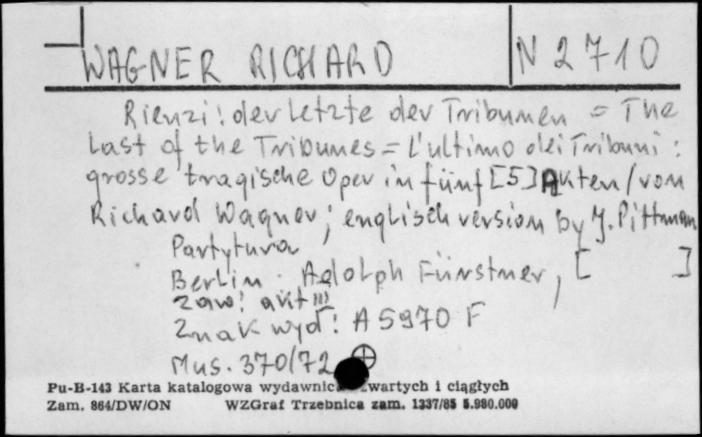 WAGNER RICHARD N 2710
Rienzi: der Letzte der Tribunen = The
Last of the Tribunes = L'ultimo dei Tribuni :
grosse tragische Oper in fünf [5] Akten / von
Richard Wagner ; englisch version by J. Pittman
Partytura
Berlin : Adolph Fürstner, [ ]
zaw: akt III
Znak wyd: A 5970 F
Mus. 370/72
Pu-B-143 Karta katalogowa wydawnic zwartych i ciągłych
Zam. 864/DW/ON WZGraf Trzebnica zam. 1337/85 5.980.000